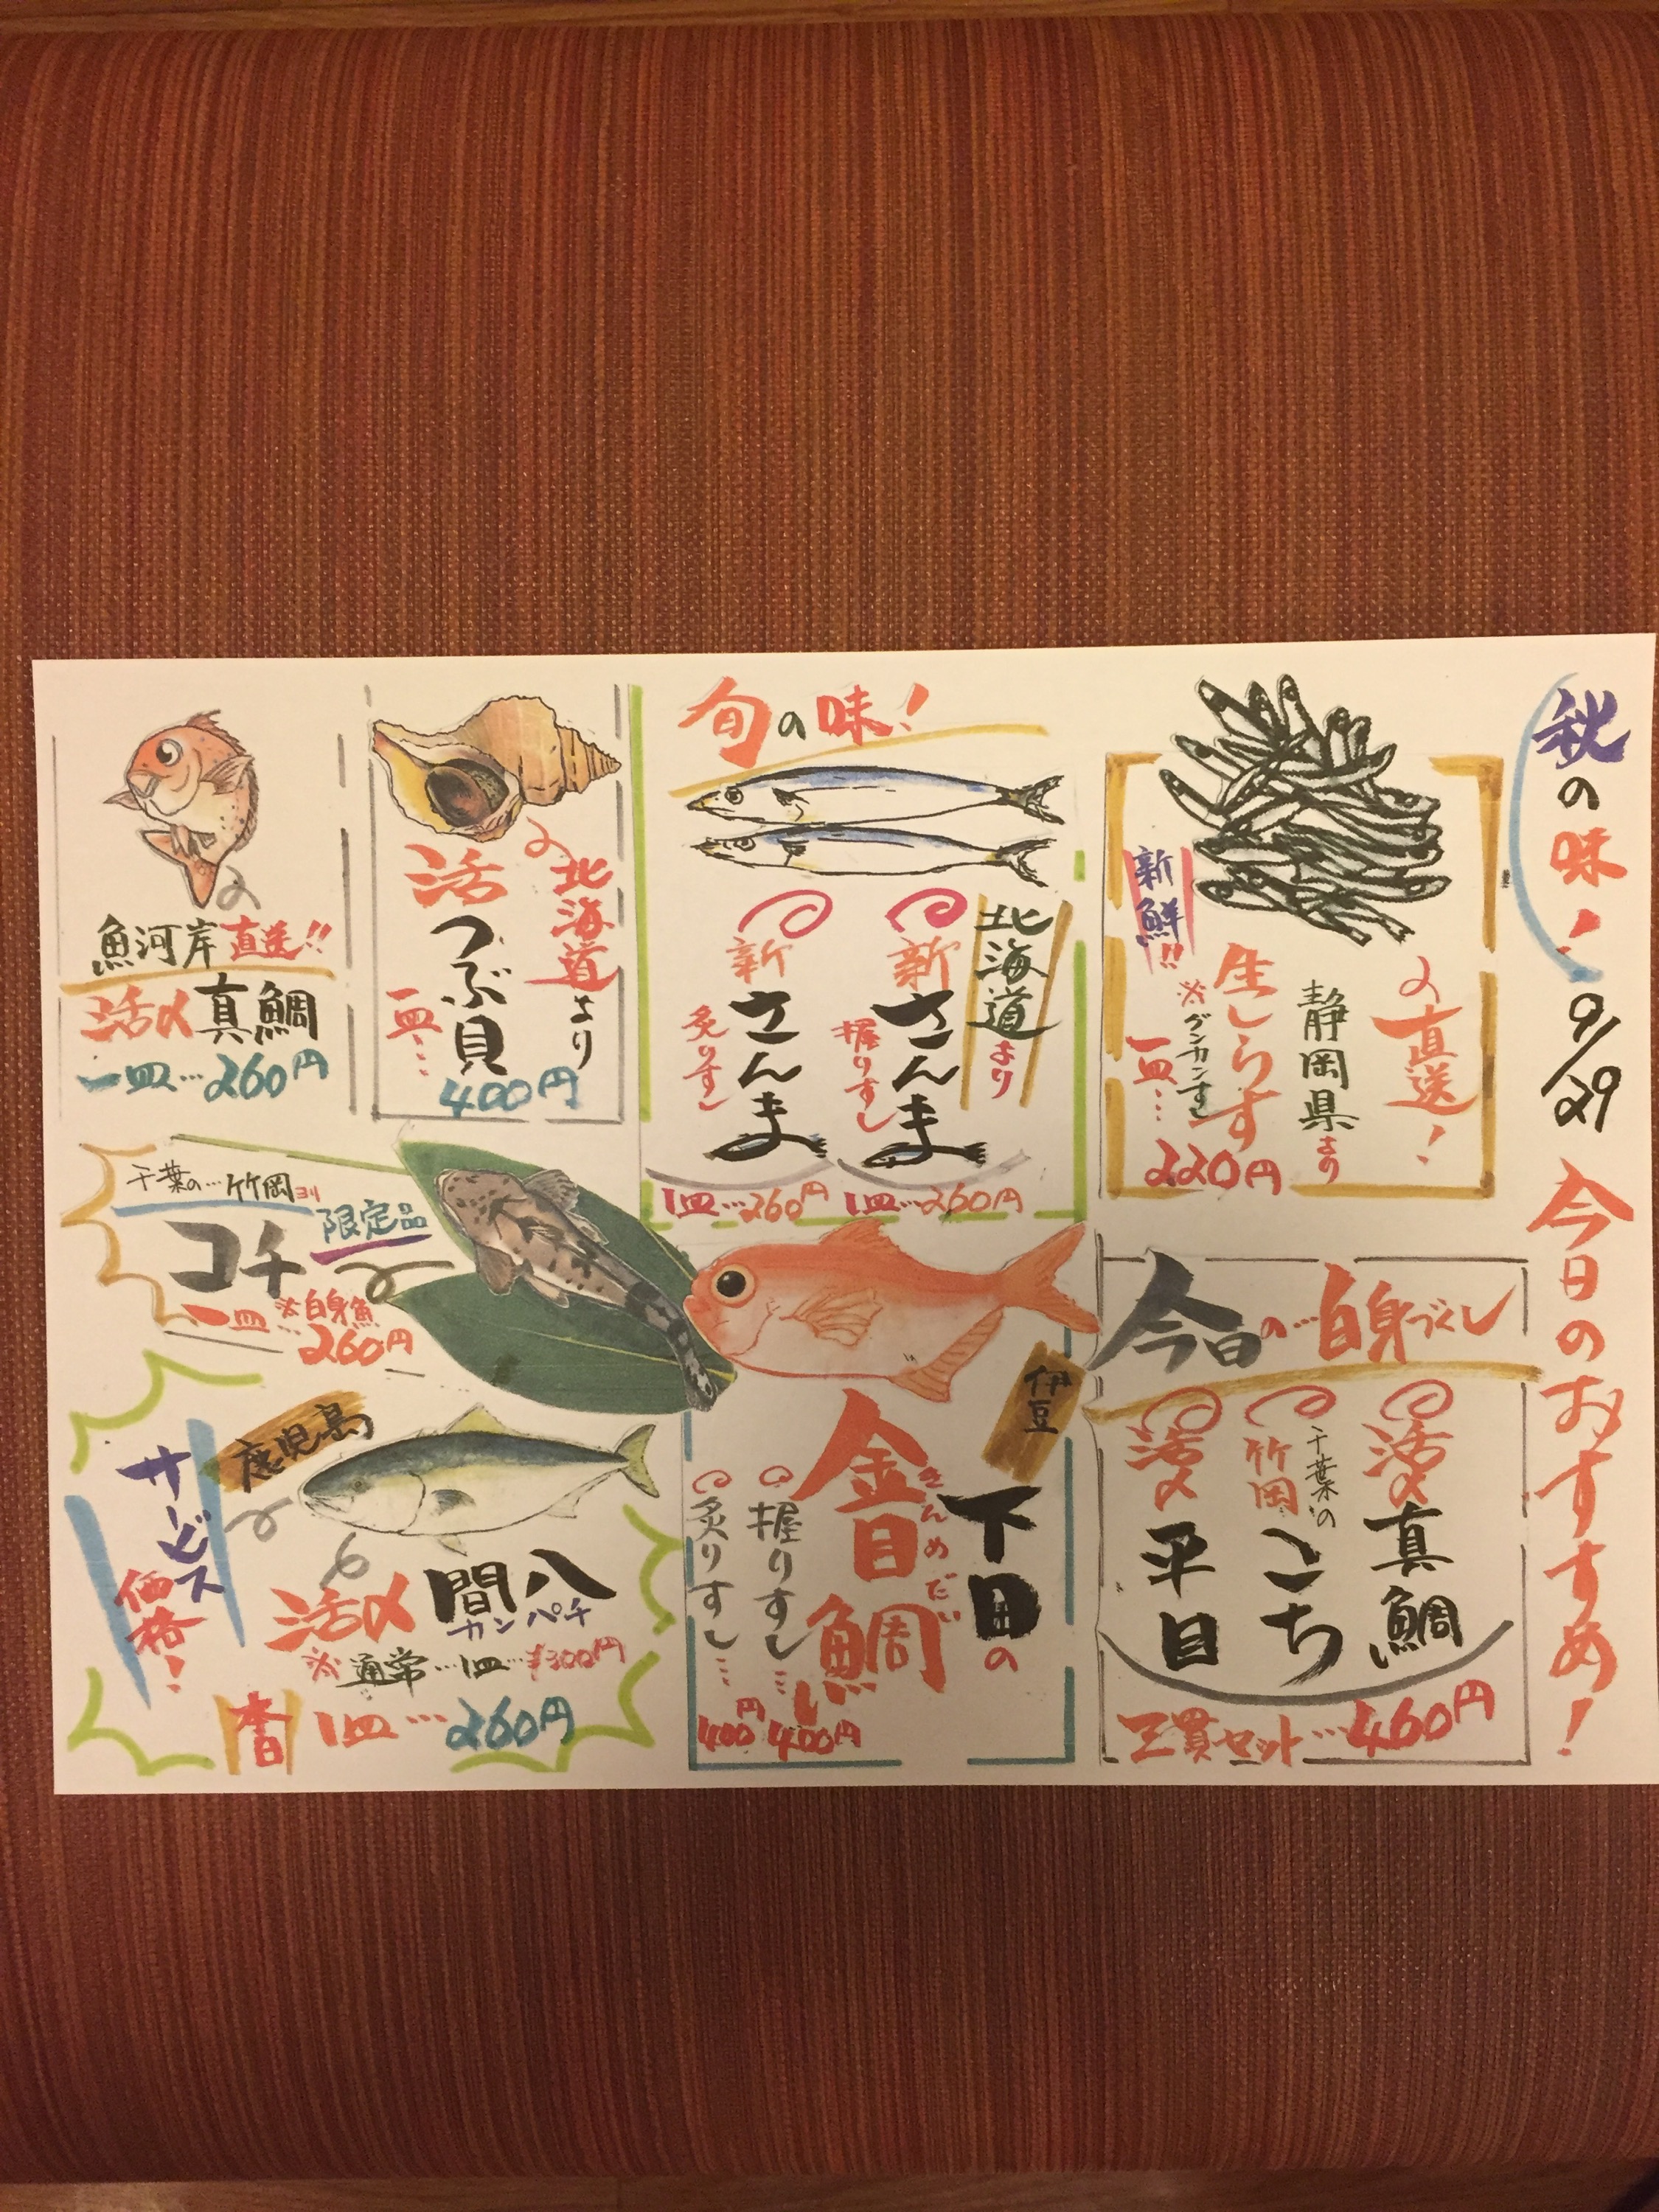 秋の味！
9/29
今日のおすすめ！
直送！
静岡県より
生しらす
※グンカンすし
新鮮!!
一皿…
220円
旬の味！
北海道より
新さんま
握りすし
1皿…260円
新さんま
炙りすし
1皿…260円
北海道より
活つぶ貝
一皿…
400円
魚河岸直送!!
活〆真鯛
一皿…260円
今日の…白身づくし
活〆真鯛
千葉の
竹岡
こち
活〆平目
三貫セット…460円
伊豆
下田の
金目鯛
きんめだい
握りすし…
400円
炙りすし…
400円
千葉の…竹岡ヨリ
限定品
コチ
※白身魚
一皿…260円
鹿児島
サービス
価格！
活〆間八
カンパチ
※通常…1皿…300円
本日1皿…260円